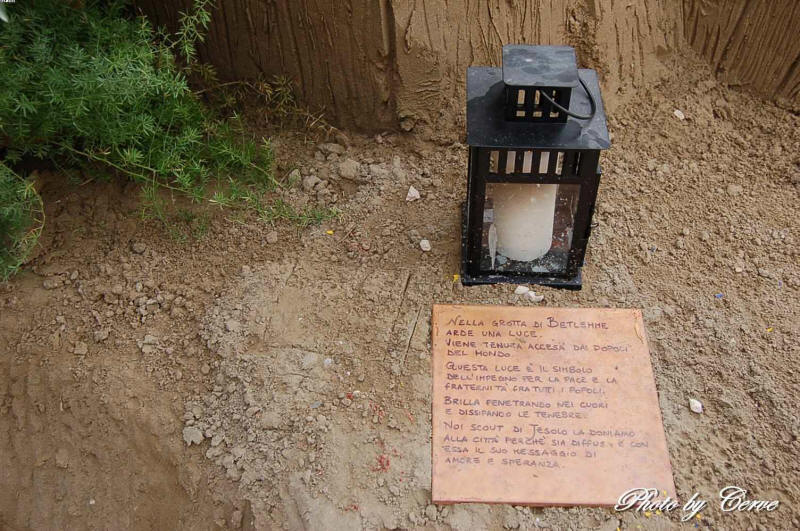 NELLA GROTTA DI BETLEMME
ARDE UNA LUCE.
VIENE TENUTA ACCESA DAI POPOLI
DEL MONDO.
QUESTA LUCE È IL SIMBOLO
DELL'IMPEGNO PER LA PACE E LA
FRATERNITÀ FRA TUTTI I POPOLI.
BRILLA PENETRANDO NEI CUORI
E DISSIPANDO LE TENEBRE.
NOI SCOUT DI JESOLO LA DONIAMO
ALLA CITTÀ PERCHÉ SIA DIFFUSA E CON
ESSA IL SUO MESSAGGIO DI
AMORE E SPERANZA.
Photo by Cerve